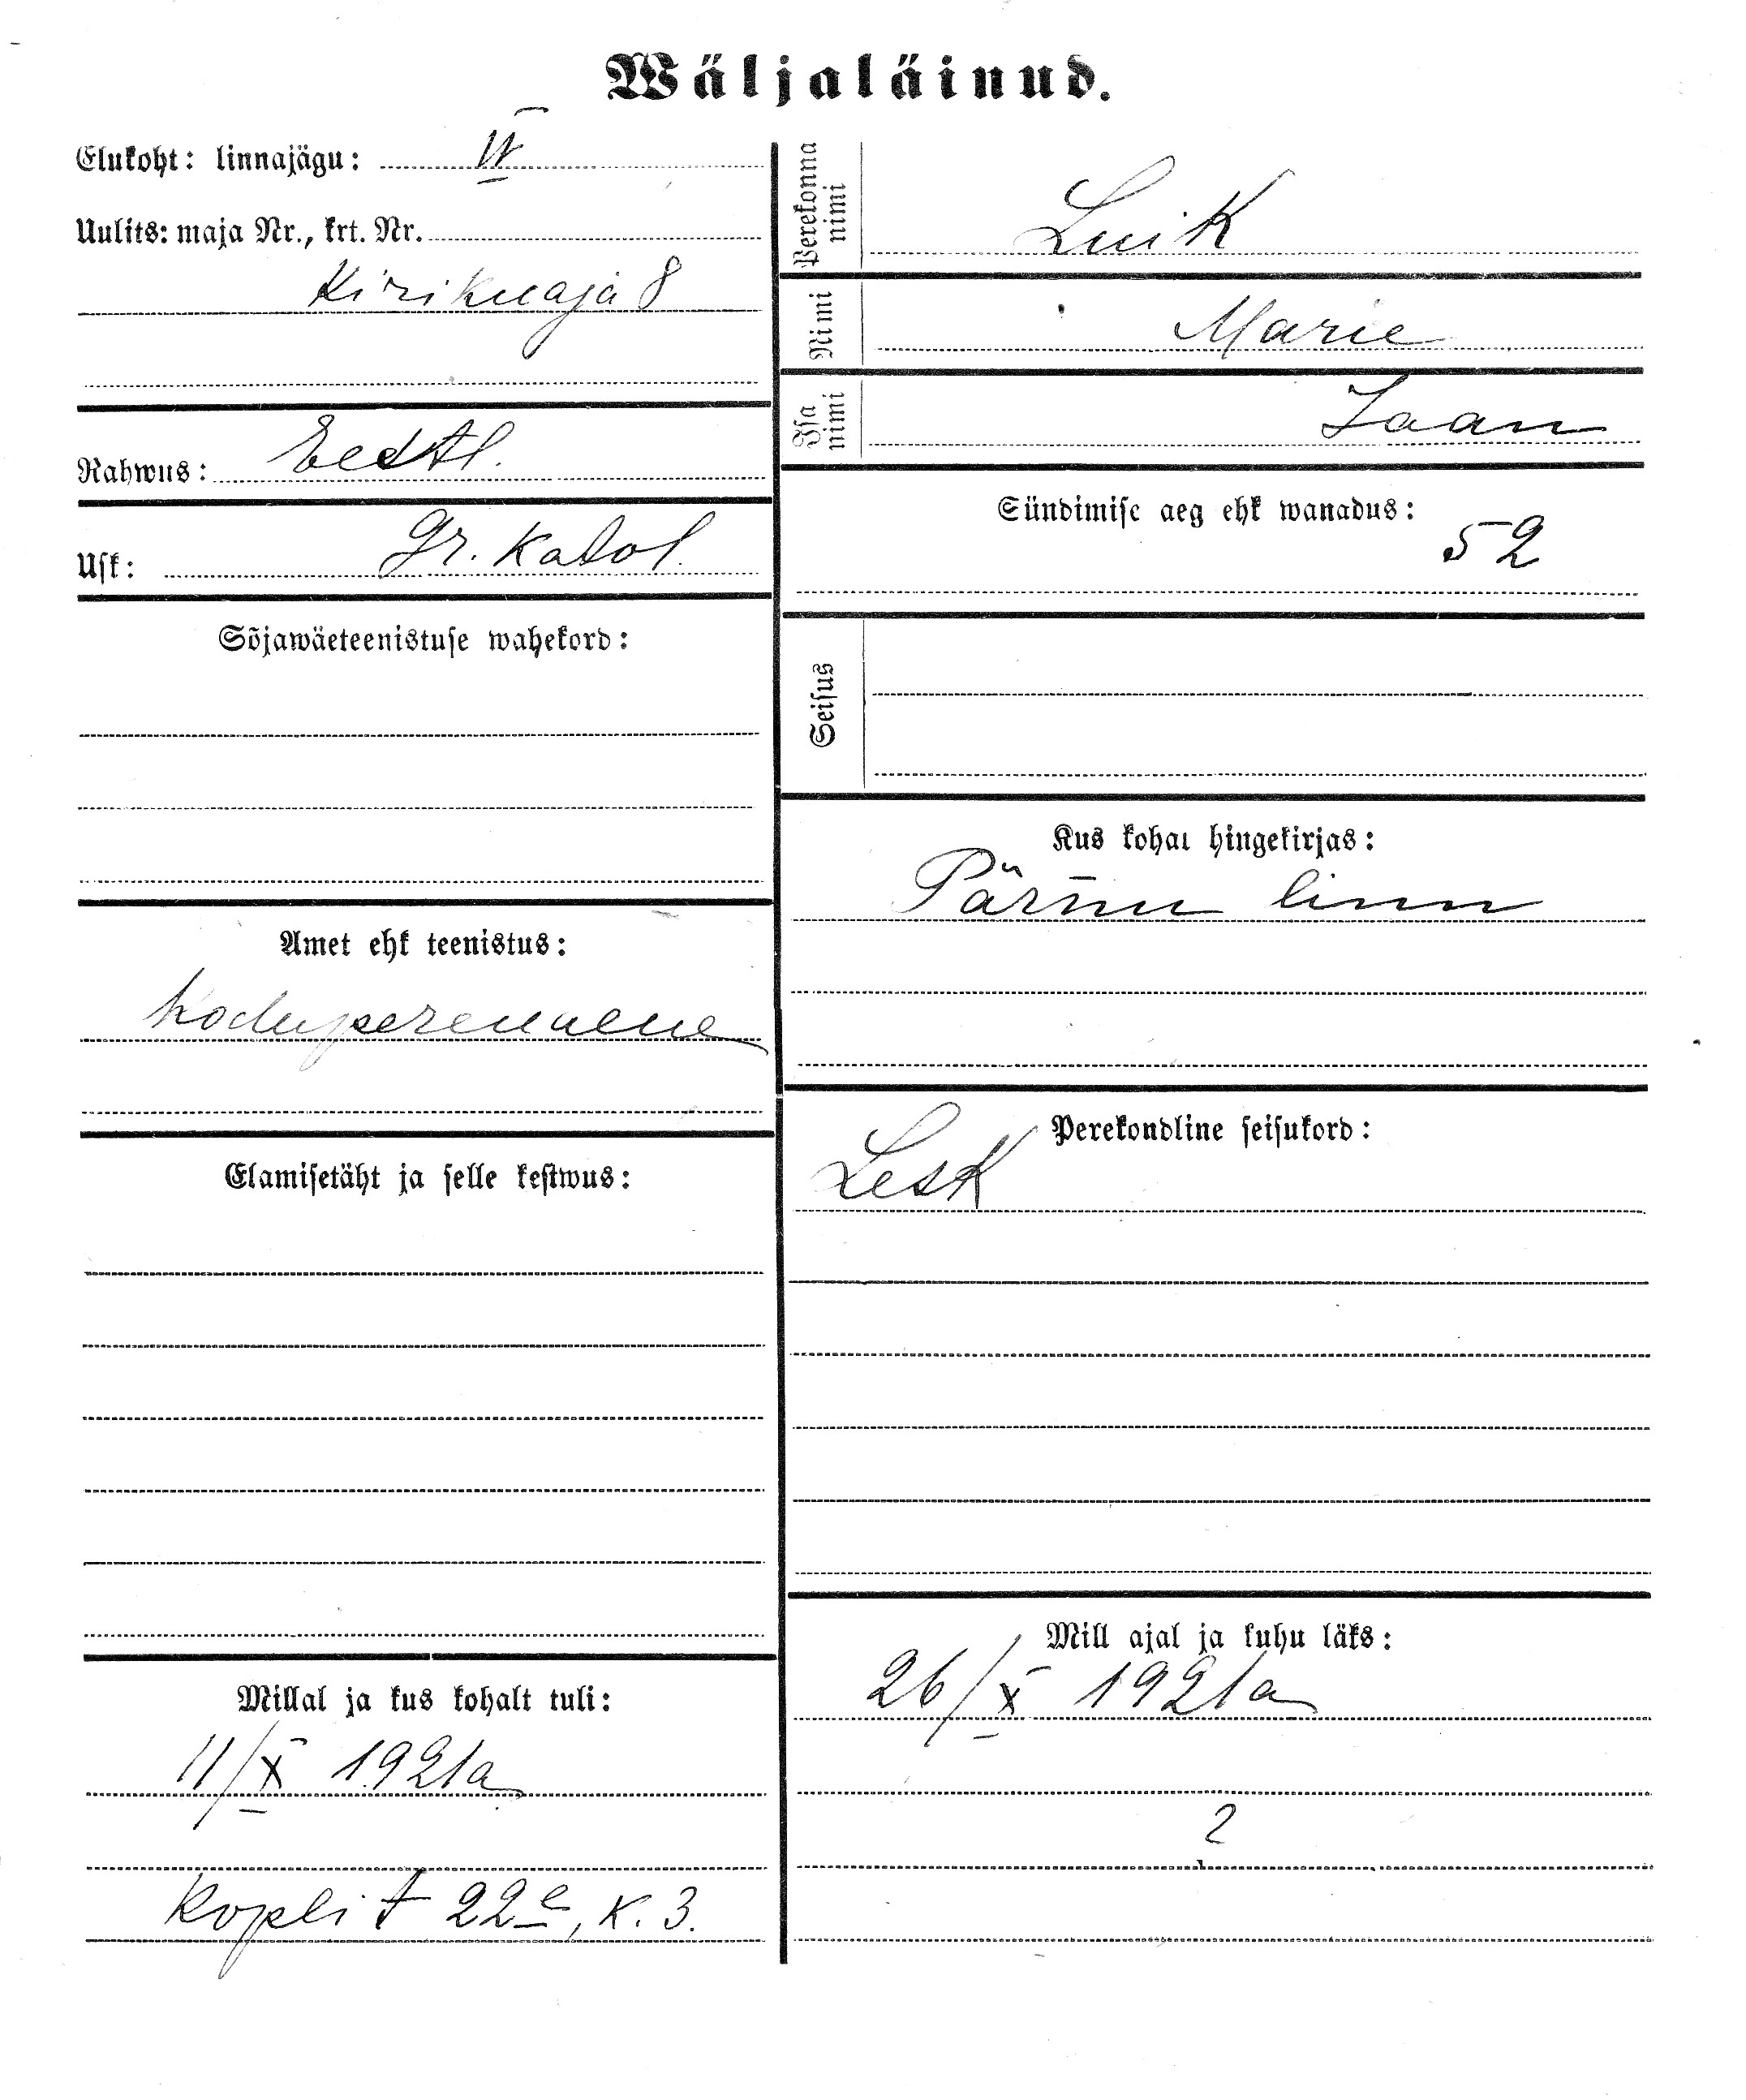 Wäljaläinud.
Elukoht: linnajägu: IV
Uulits: maja Nr., krt. Nr.
Kirikuaja 8
Rahwus: Eestl.
Usk: Gr. Katol.
Sõjawäeteenistuse wahekord:
Amet ehk teenistus:
Koduperenaene
Elamisetäht ja selle kestwus:
Millal ja kus kohalt tuli:
11/X 1921a
Kopli t 22e, K. 3.
Perekonna nimi
Luik
Nimi
Marie
Isa nimi
Jaan
Sündimise aeg ehk wanadus:
52
Seisus
Kus kohal hingekirjas:
Pärnu linn
Perekondline seisukord:
Lesk
Mill ajal ja kuhu läks:
26/X 1921a
?